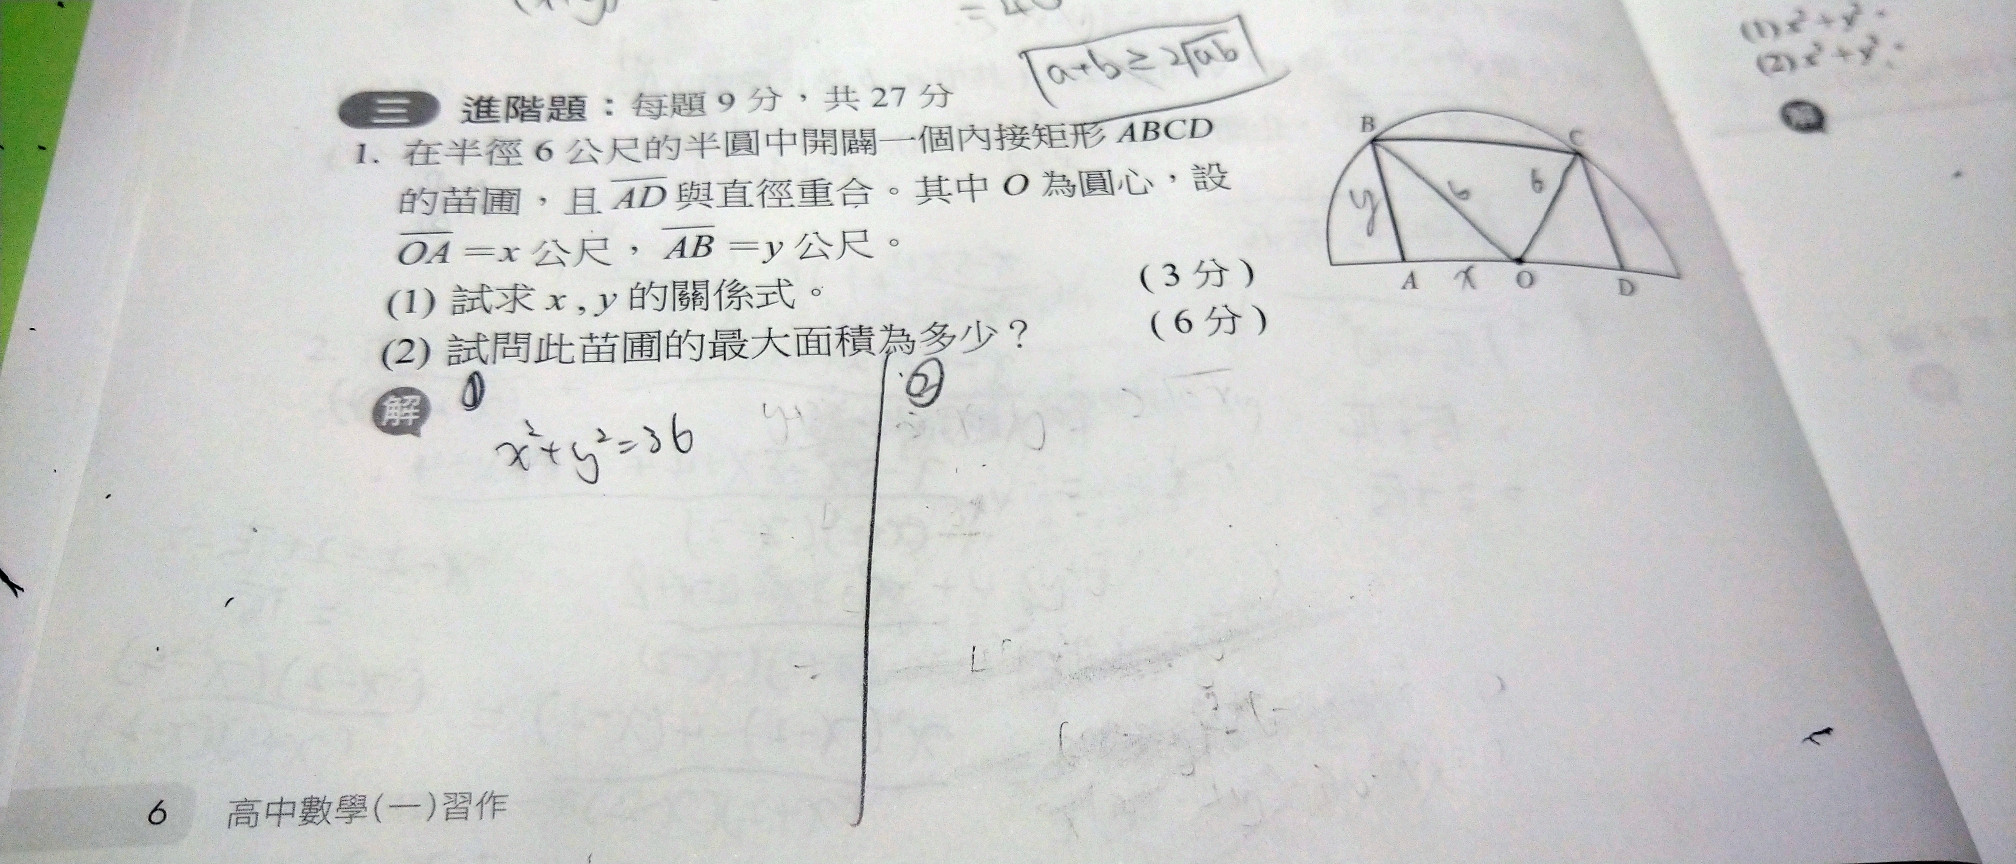 a+b≥2√ab
三 進階題：每題 9 分，共 27 分
1. 在半徑 6 公尺的半圓中開闢一個內接矩形 ABCD
的苗圃，且 AD 與直徑重合。其中 O 為圓心，設
OA =x 公尺， AB =y 公尺。
(1) 試求 x , y 的關係式。 ( 3 分 )
(2) 試問此苗圃的最大面積為多少？ ( 6 分 )
B C
y 6 6
A x O D
解 ① ②
x²+y²=36
6 高中數學(一)習作
(1) x²+y²
(2) x²+y²
解